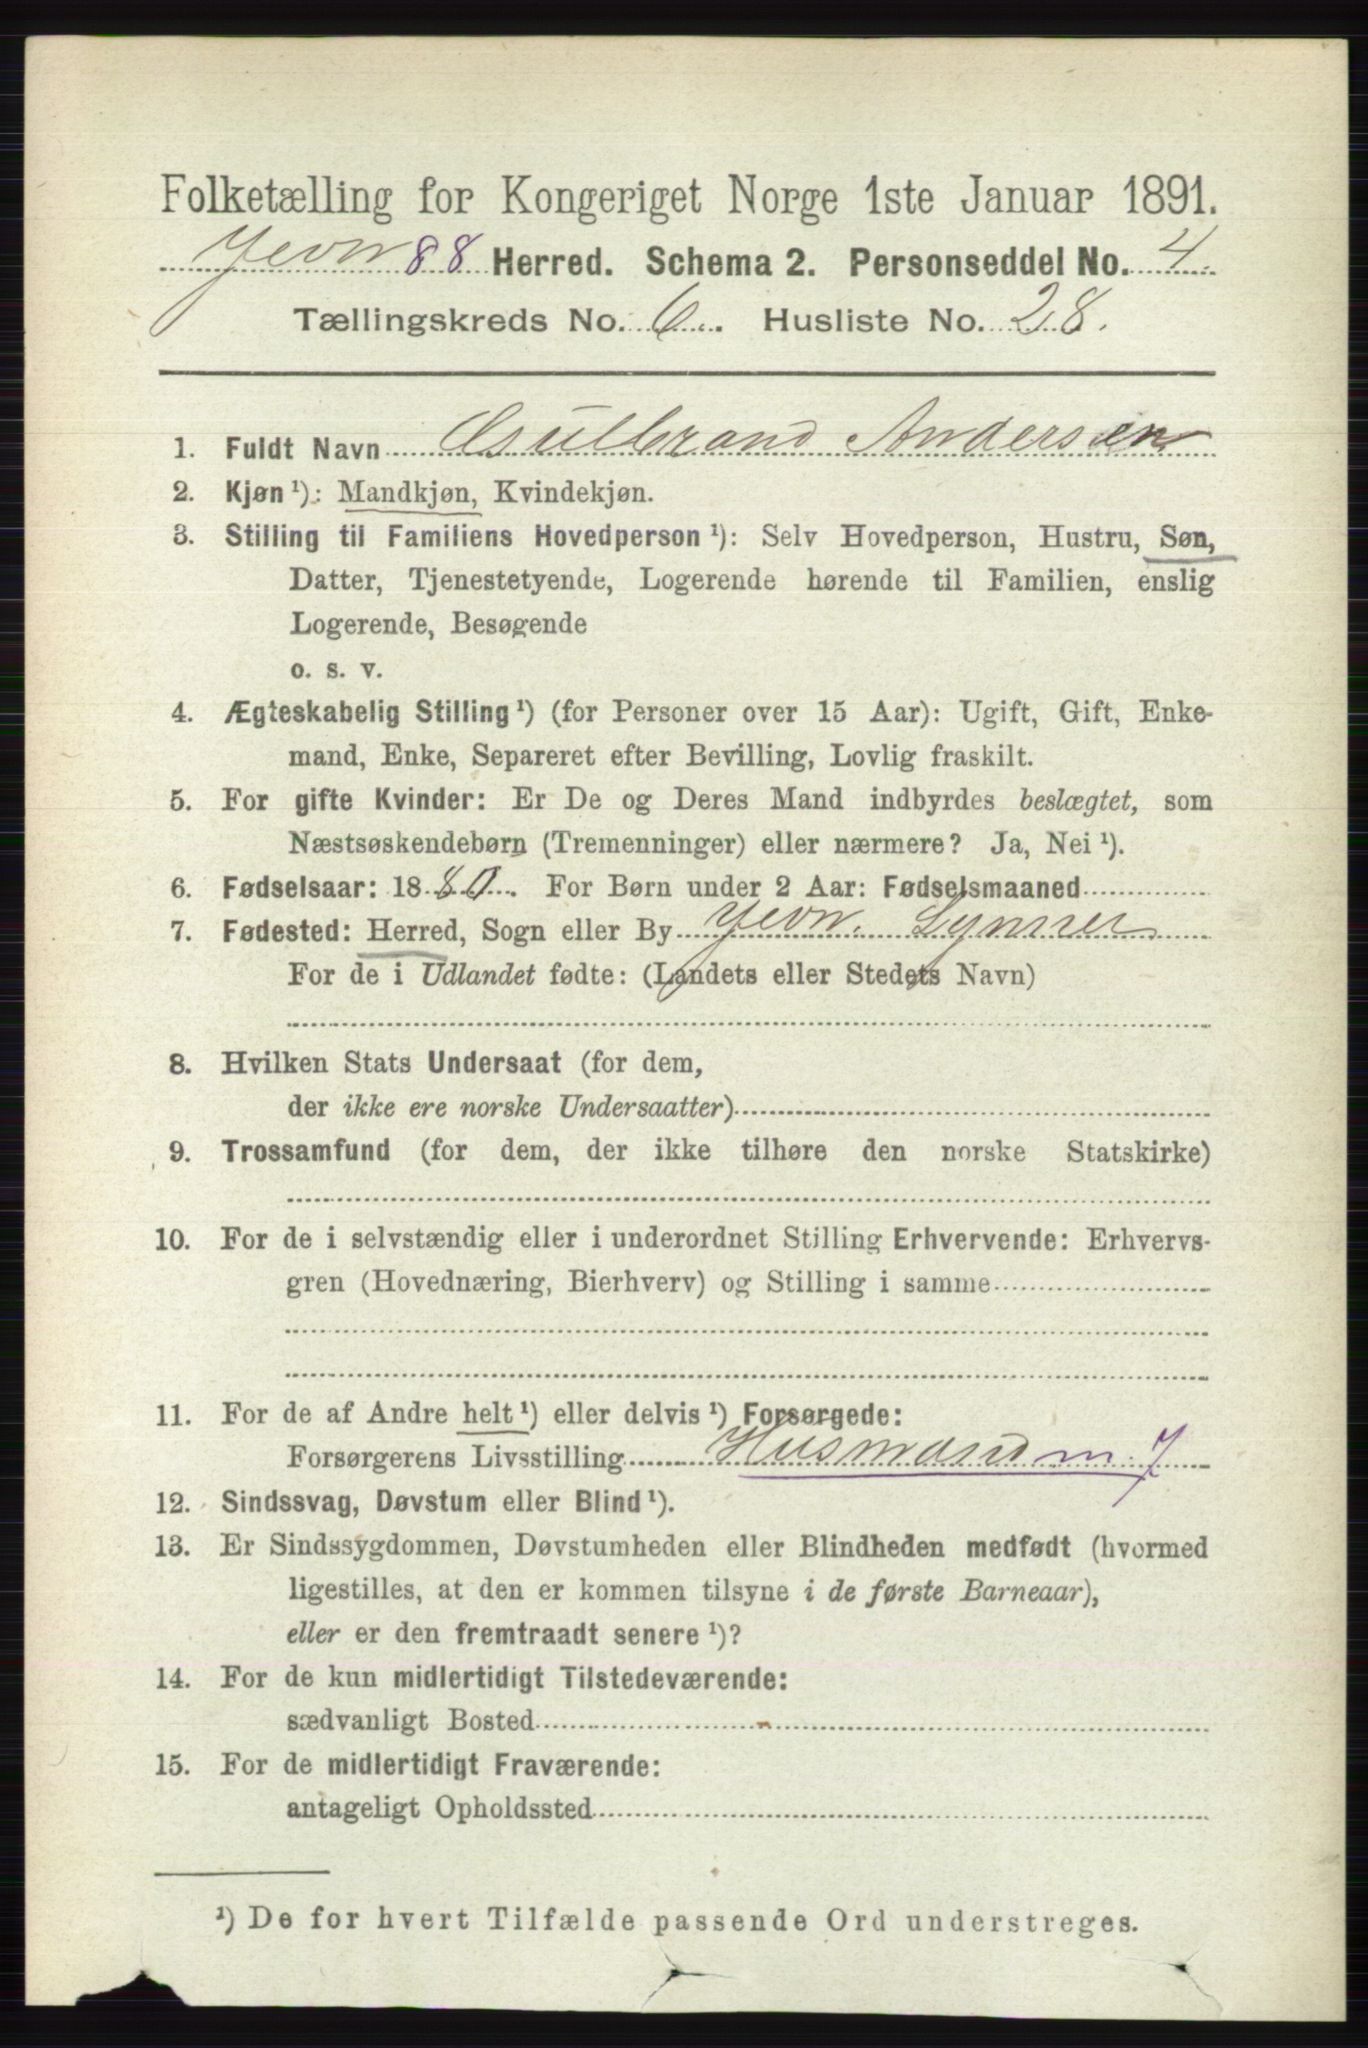 Folketælling for Kongeriget Norge 1ste Januar 1891.
Jevn 88 Herred. Schema 2. Personseddel No. 4.
Tællingskreds No. 6. Husliste No. 28.
1. Fuldt Navn Gulbrand Andersen
2. Kjøn ¹): Mandkjøn, Kvindekjøn.
3. Stilling til Familiens Hovedperson ¹): Selv Hovedperson, Hustru, Søn,
Datter, Tjenestetyende, Logerende hørende til Familien, enslig
Logerende, Besøgende
o. s. v.
4. Ægteskabelig Stilling ¹) (for Personer over 15 Aar): Ugift, Gift, Enke-
mand, Enke, Separeret efter Bevilling, Lovlig fraskilt.
5. For gifte Kvinder: Er De og Deres Mand indbyrdes beslægtet, som
Næstsøskendebørn (Tremenninger) eller nærmere? Ja, Nei ¹).
6. Fødselsaar: 1880. For Børn under 2 Aar: Fødselsmaaned
7. Fødested: Herred, Sogn eller By Jevn. Lynner
For de i Udlandet fødte: (Landets eller Stedets Navn)
8. Hvilken Stats Undersaat (for dem,
der ikke ere norske Undersaatter)
9. Trossamfund (for dem, der ikke tilhøre den norske Statskirke)
10. For de i selvstændig eller i underordnet Stilling Erhvervende: Erhvervs-
gren (Hovednæring, Bierhverv) og Stilling i samme
11. For de af Andre helt ¹) eller delvis ¹) Forsørgede:
Forsørgerens Livsstilling Husmand m. J
12. Sindssvag, Døvstum eller Blind ¹).
13. Er Sindssygdommen, Døvstumheden eller Blindheden medfødt (hvormed
ligestilles, at den er kommen tilsyne i de første Barneaar),
eller er den fremtraadt senere ¹)?
14. For de kun midlertidigt Tilstedeværende:
sædvanligt Bosted
15. For de midlertidigt Fraværende:
antageligt Opholdssted
¹) De for hvert Tilfælde passende Ord understreges.